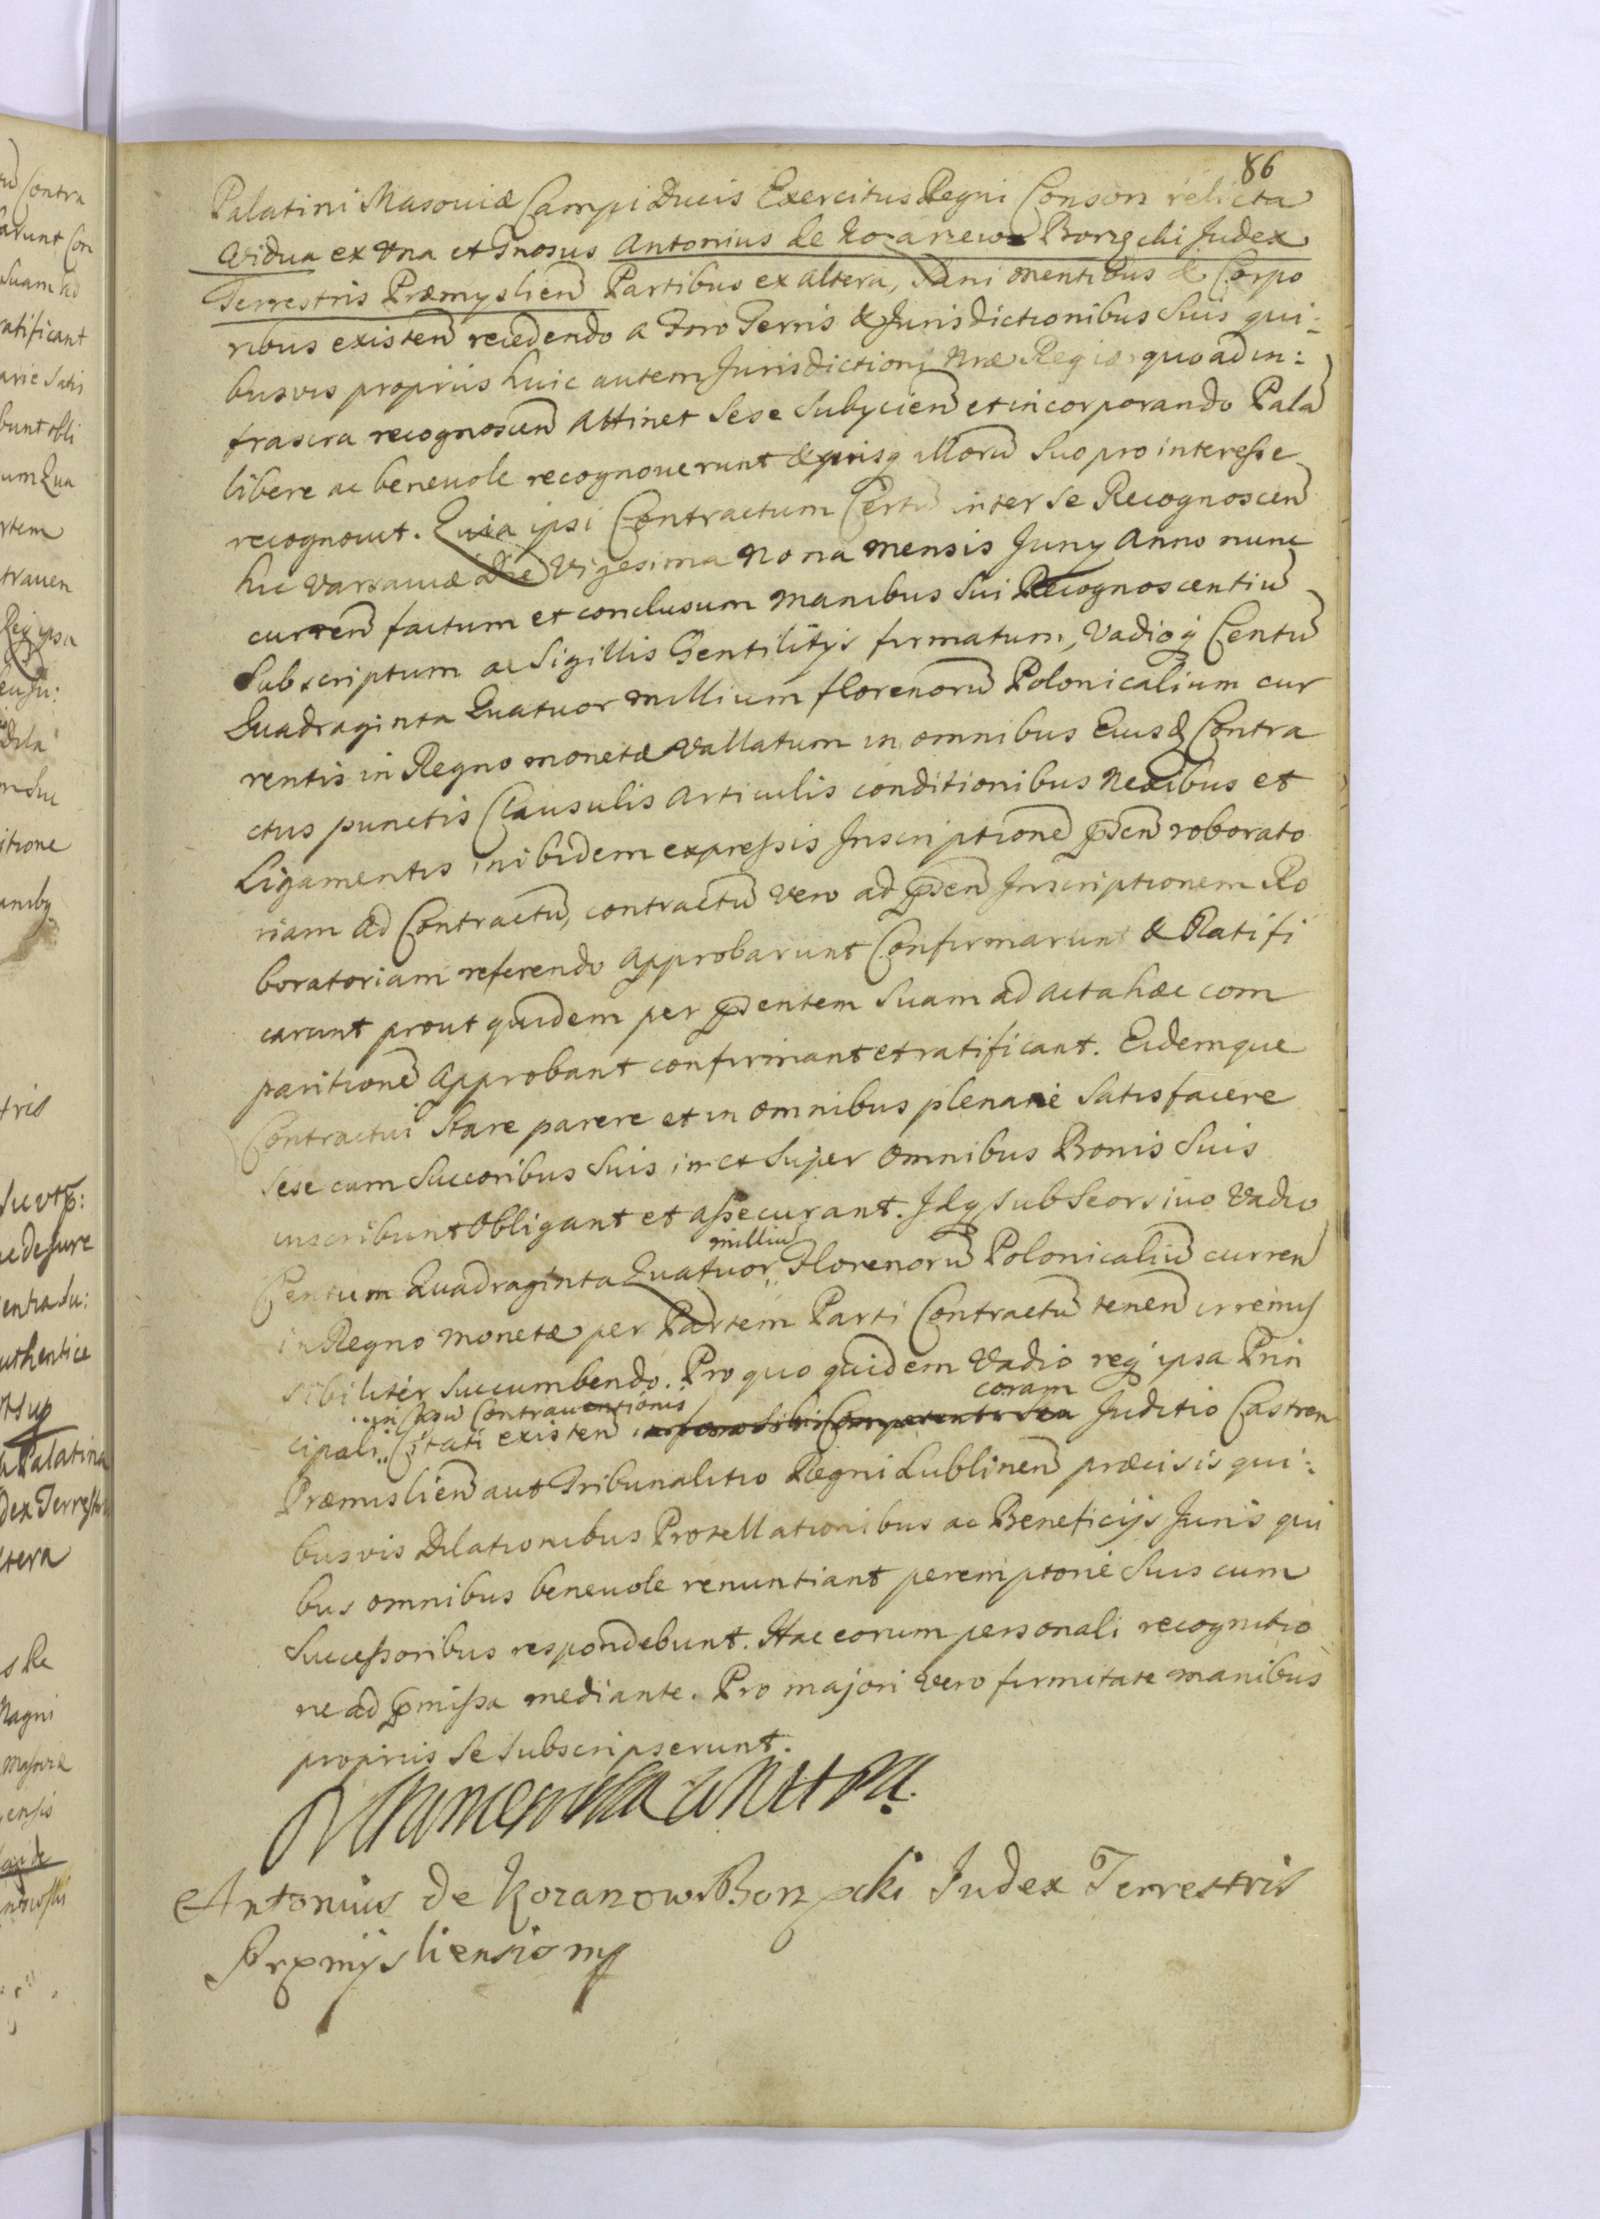 86
Palatini Masoviæ Campi Ducis Exercitus Regni Conson relicta
Vidua ex Una et Gnosus Antonius de Borzęcki Judex
Terrestris Præmyslien Partibus ex altera, Sani mentibus & Corpo
ribus existen recedendo a Foro Terris & Jurisdictionibus Suis qui:
busvis propriis huic autem Jurisdictioni Nræ Regio quoad in:
frascra recognoscen attinet Sese Subycien et incorporando Pala
libere ac benevole recognoverunt & quisq illoru Suo pro interesse
recognovit. Quia ipsi Contractum Certu inter se Recognoscen
hic Varsaviæ Die Vigesima Nona mensis Juny Anno nunc
curren factum et conclusum manibus Sui Recognoscentiu
Subscriptum ac Sigillis Gentilitijs firmatum, Vadioq Centu
Quadraginta Quatuor millium florenoru Polonicalium cur
rentis in Regno monetæ Vallatum in omnibus Eiusd Contra
ctus punctis Clausulis Articulis conditionibus Nexibus et
Ligamentis inibidem expressis Inscriptione pñsen roborato
riam ad Contractu, contractu vero ad pñsen Inscriptionem Ro
boratoriam referendo approbarunt Confirmarunt & Ratifi
carunt prout quidem per pñsentem Suam ad acta hæc com
paritione Approbant confirmant et ratificant. Eidemque
Contractui Stare parere et in omnibus plenarie Satisfacere
sese cum Succoribus Suis in et Super omnibus Bonis Suis
inscribunt Obligant et assecurant. Idq sub Seorsivo Vadio
Centum Quadraginta Quatuor milliu Florenoru Polonicaliu curren
in Regno monetæ per Partem Parti Contractu tenen irremis
sibiliter Succumbendo. Pro quo quidem Vadio req ipsa Prin
cipali in casu Contraventionis Citati existen coram Juditio Castren
Præmislien aut Tribunalitio Regni Lublinen præcisis qui:
busvis Dilationibus Protellationibus ac Beneficijs Juris qui
bus omnibus benevole renuntiant peremptorie Suis cum
Successoribus respondebunt. Hac eorum personali recognitio
ne ad pmissa mediante. Pro majori vero firmitate manibus
propriis Se Subscripserunt.
Antonius de Kozarzow Borzęcki Judex Terrestris
Præmysliensis mp